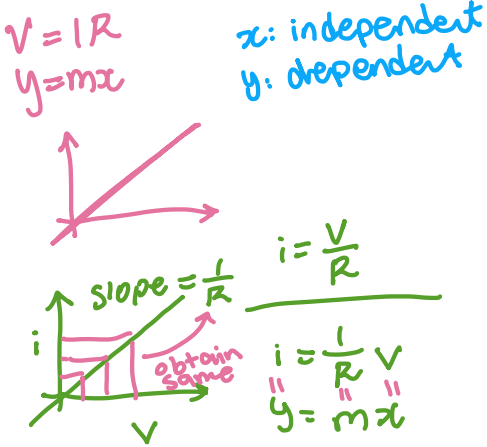 V = IR
y = mx
x: independent
y: drependent
i = V/R
slope = 1/R
i
obtain
same
V
i = 1/R V
= = =
y = m x